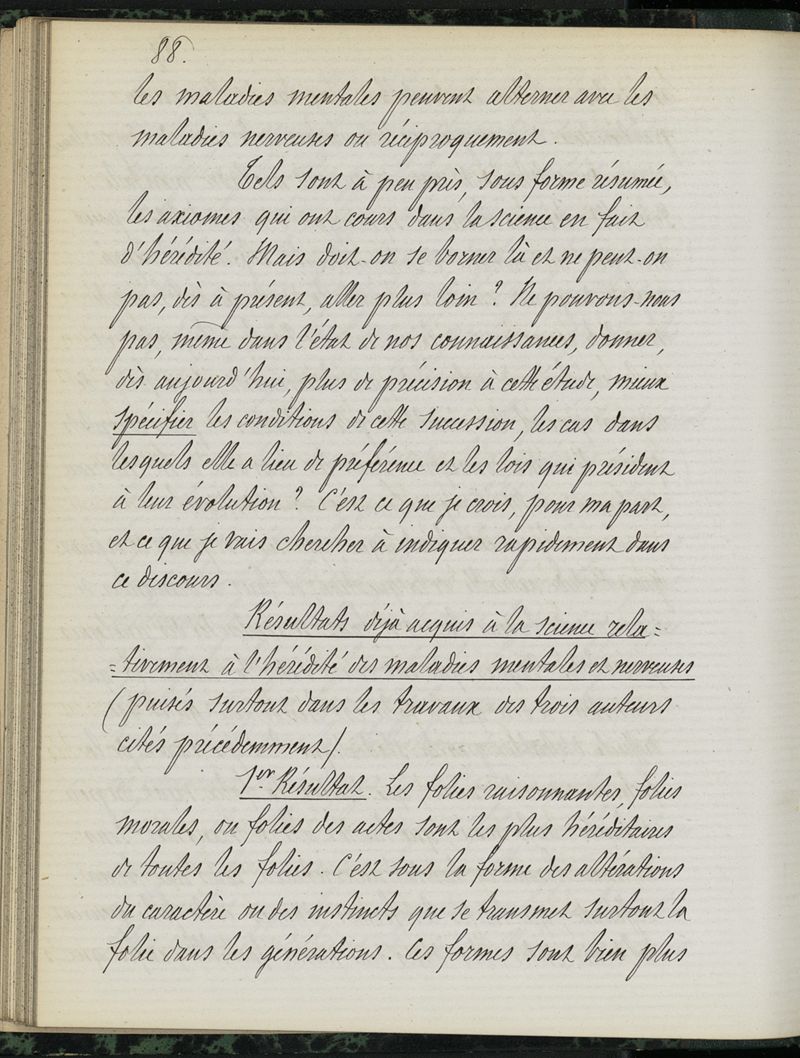 88.
les maladies mentales peuvent alterner avec les
maladies nerveuses ou réciproquement.
Tels sont à peu près, sous forme résumée,
les axiomes qui ont cours dans la science en fait
d'hérédité. Mais doit-on se borner là et ne peut-on
pas, dès à présent, aller plus loin ? Ne pouvons-nous
pas, même dans l'état de nos connaissances, donner,
dès aujourd'hui, plus de précision à cette étude, mieux
spécifier les conditions de cette succession, les cas dans
lesquels elle a lieu de préférence et les lois qui président
à leur évolution ? C'est ce que je crois, pour ma part,
et ce que je vais chercher à indiquer rapidement dans
ce discours.
Résultats déjà acquis à la science rela=
=tivement à l'hérédité des maladies mentales et nerveuses
(puisés surtout dans les travaux des trois auteurs
cités précédemment).
1er Résultat. Les folies raisonnantes, folies
morales, ou folies des actes sont les plus héréditaires
de toutes les folies. C'est sous la forme des altérations
du caractère ou des instincts que se transmet surtout la
folie dans les générations. Ces formes sont bien plus